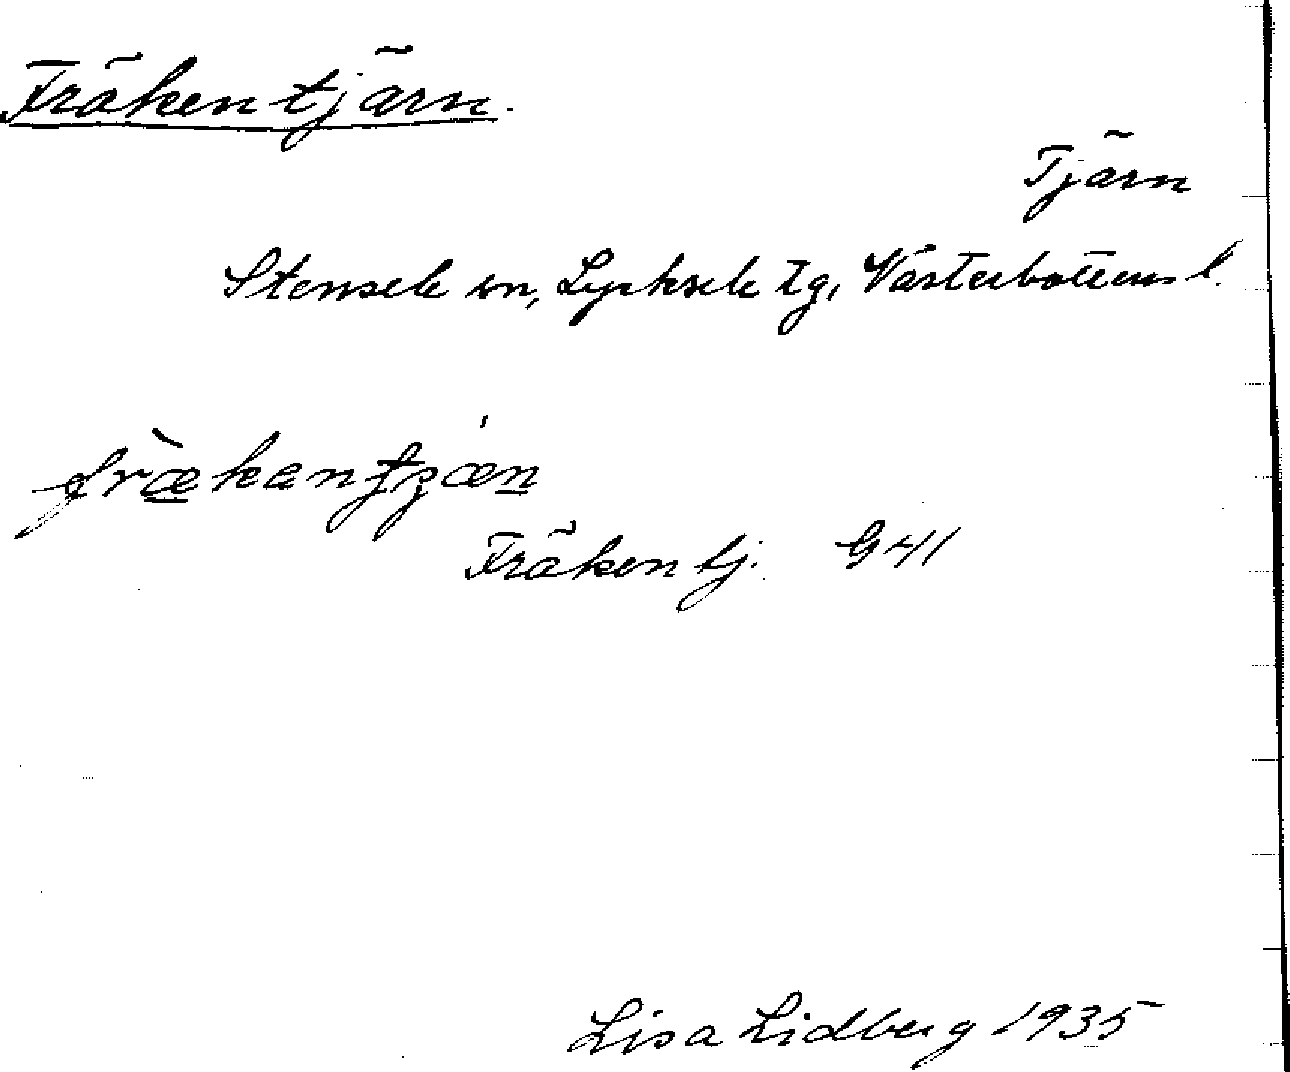 Fräkentjärn.
Tjärn
Stensele sn, Lycksele tg, Västerbottens l.
fræ̀kantjǽn
Fräkentj. G41
Lisa Lidberg 1935